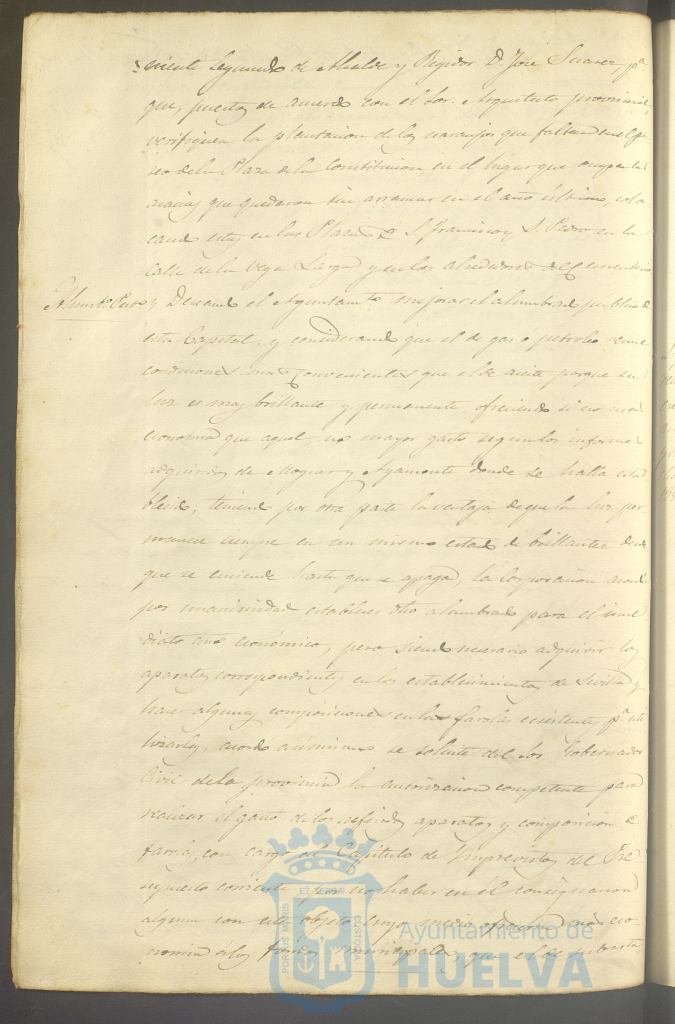 niente Segundo de Alcalde y Regidor D. José Suarez, pª
que, puestos de acuerdo con el Sor. Arquitecto provincial,
verifiquen la plantacion de los naranjos que faltan en el pa
seo de la Plaza de la Constitucion en el lugar que ocupan las
acacias que quedaron sin arrancar en el año último, colo
cando estas en las Plazas de S. Francisco y S. Pedro, en la
calle de la Vega Larga y en los alrededores del Cementerio
Alumbº Puco
Deseando el Ayuntamto mejorar el alumbrado publico de
esta Capital, y considerando que el de gas ó petroleo reune
condiciones mas convenientes que el de aceite porque su
luz es mas brillante y permanente, ofreciendo si no mas
economia que aquel, no mayor gasto segun los informes
adquiridos de Moguer y Ayamonte donde se halla esta
blecido, teniendo por otra parte la ventaja de que la luz per
manece siempre en un mismo estado de brillantez desde
que se enciende hasta que se apaga, la Corporacion acordó
por unanimidad establecer dho alumbrado para el inme
diato año económico, pero siendo necesario adquirir los
aparatos correspondientes en los establecimientos de Sevilla y
hacer algunas composiciones en las farolas existentes pª uti
lizarlas, acordó asimismo se solicite del Sor Gobernador
Civil de la provincia la autorizacion competente para
realizar el gasto de los referidos aparatos y composicion de
farolas, con cargo al Capitulo de Imprevistos del Pre
supuesto corriente por no haber en él consignacion
alguna con este objeto, cuyo medio ofrece mas eco-
nomia á los fondos municipales, que el de subasta
PORTUS MARIS
ET TERRÆ
CUSTODIA
Ayuntamiento de
HUELVA